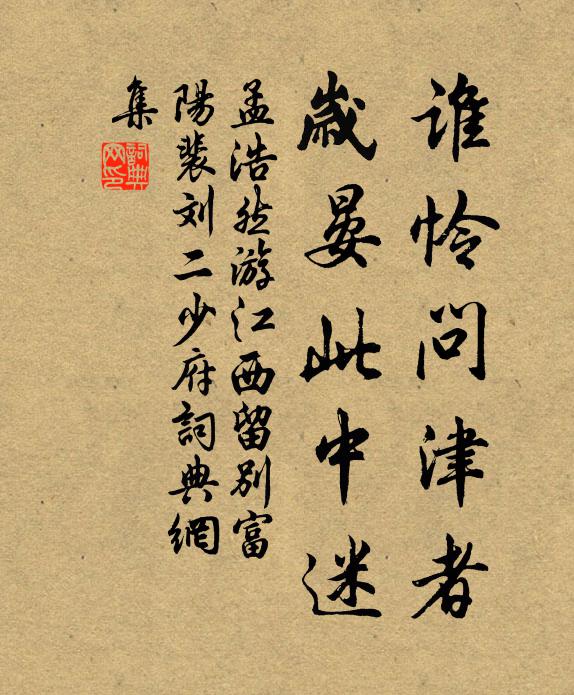 谁怜问津者
岁晏此中迷
孟浩然游江西留别富
阳裴刘二少府詞典網
集
詞典網印